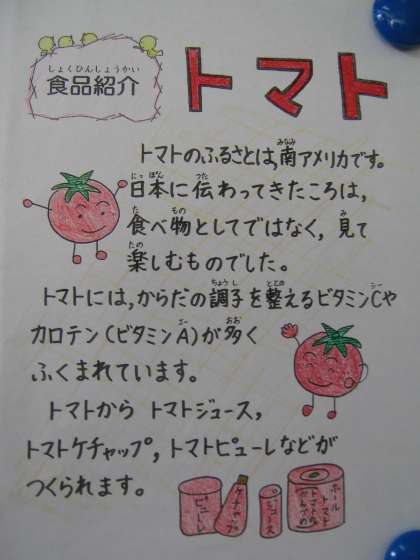 しょくひんしょうかい
食品紹介
トマト
トマトのふるさとは,南アメリカです。
日本に伝わってきたころは,
食べ物としてではなく,見て
楽しむものでした。
トマトには,からだの調子を整えるビタミンCや
カロテン(ビタミンA)が多く
ふくまれています。
トマトから トマトジュース,
トマトケチャップ,トマトピューレなどが
つくられます。
ピューレ
ケチャップ
ジュース
ホール
トマト